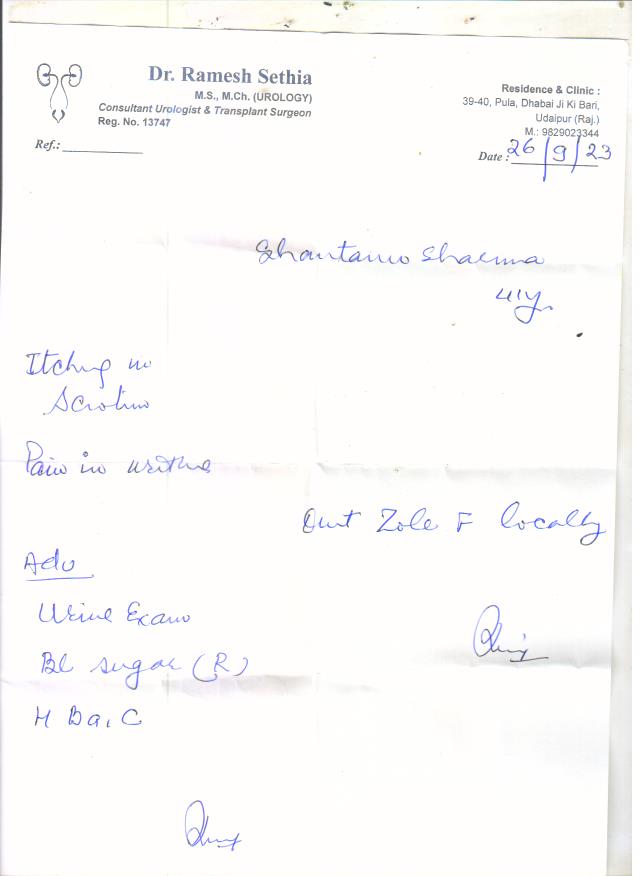 Dr. Ramesh Sethia
M.S., M.Ch. (UROLOGY)
Consultant Urologist & Transplant Surgeon
Reg. No. 13747
Ref.:
Residence & Clinic :
39-40, Pula, Dhabai Ji Ki Bari,
Udaipur (Raj.)
M.: 9829023344
Date : 26/9/23
Sharma
41y
Itching in
Scrotum
Pain in urethra
Oint Zole F locally
Adv
Urine Exam
Bl sugar (R)
HBa1C